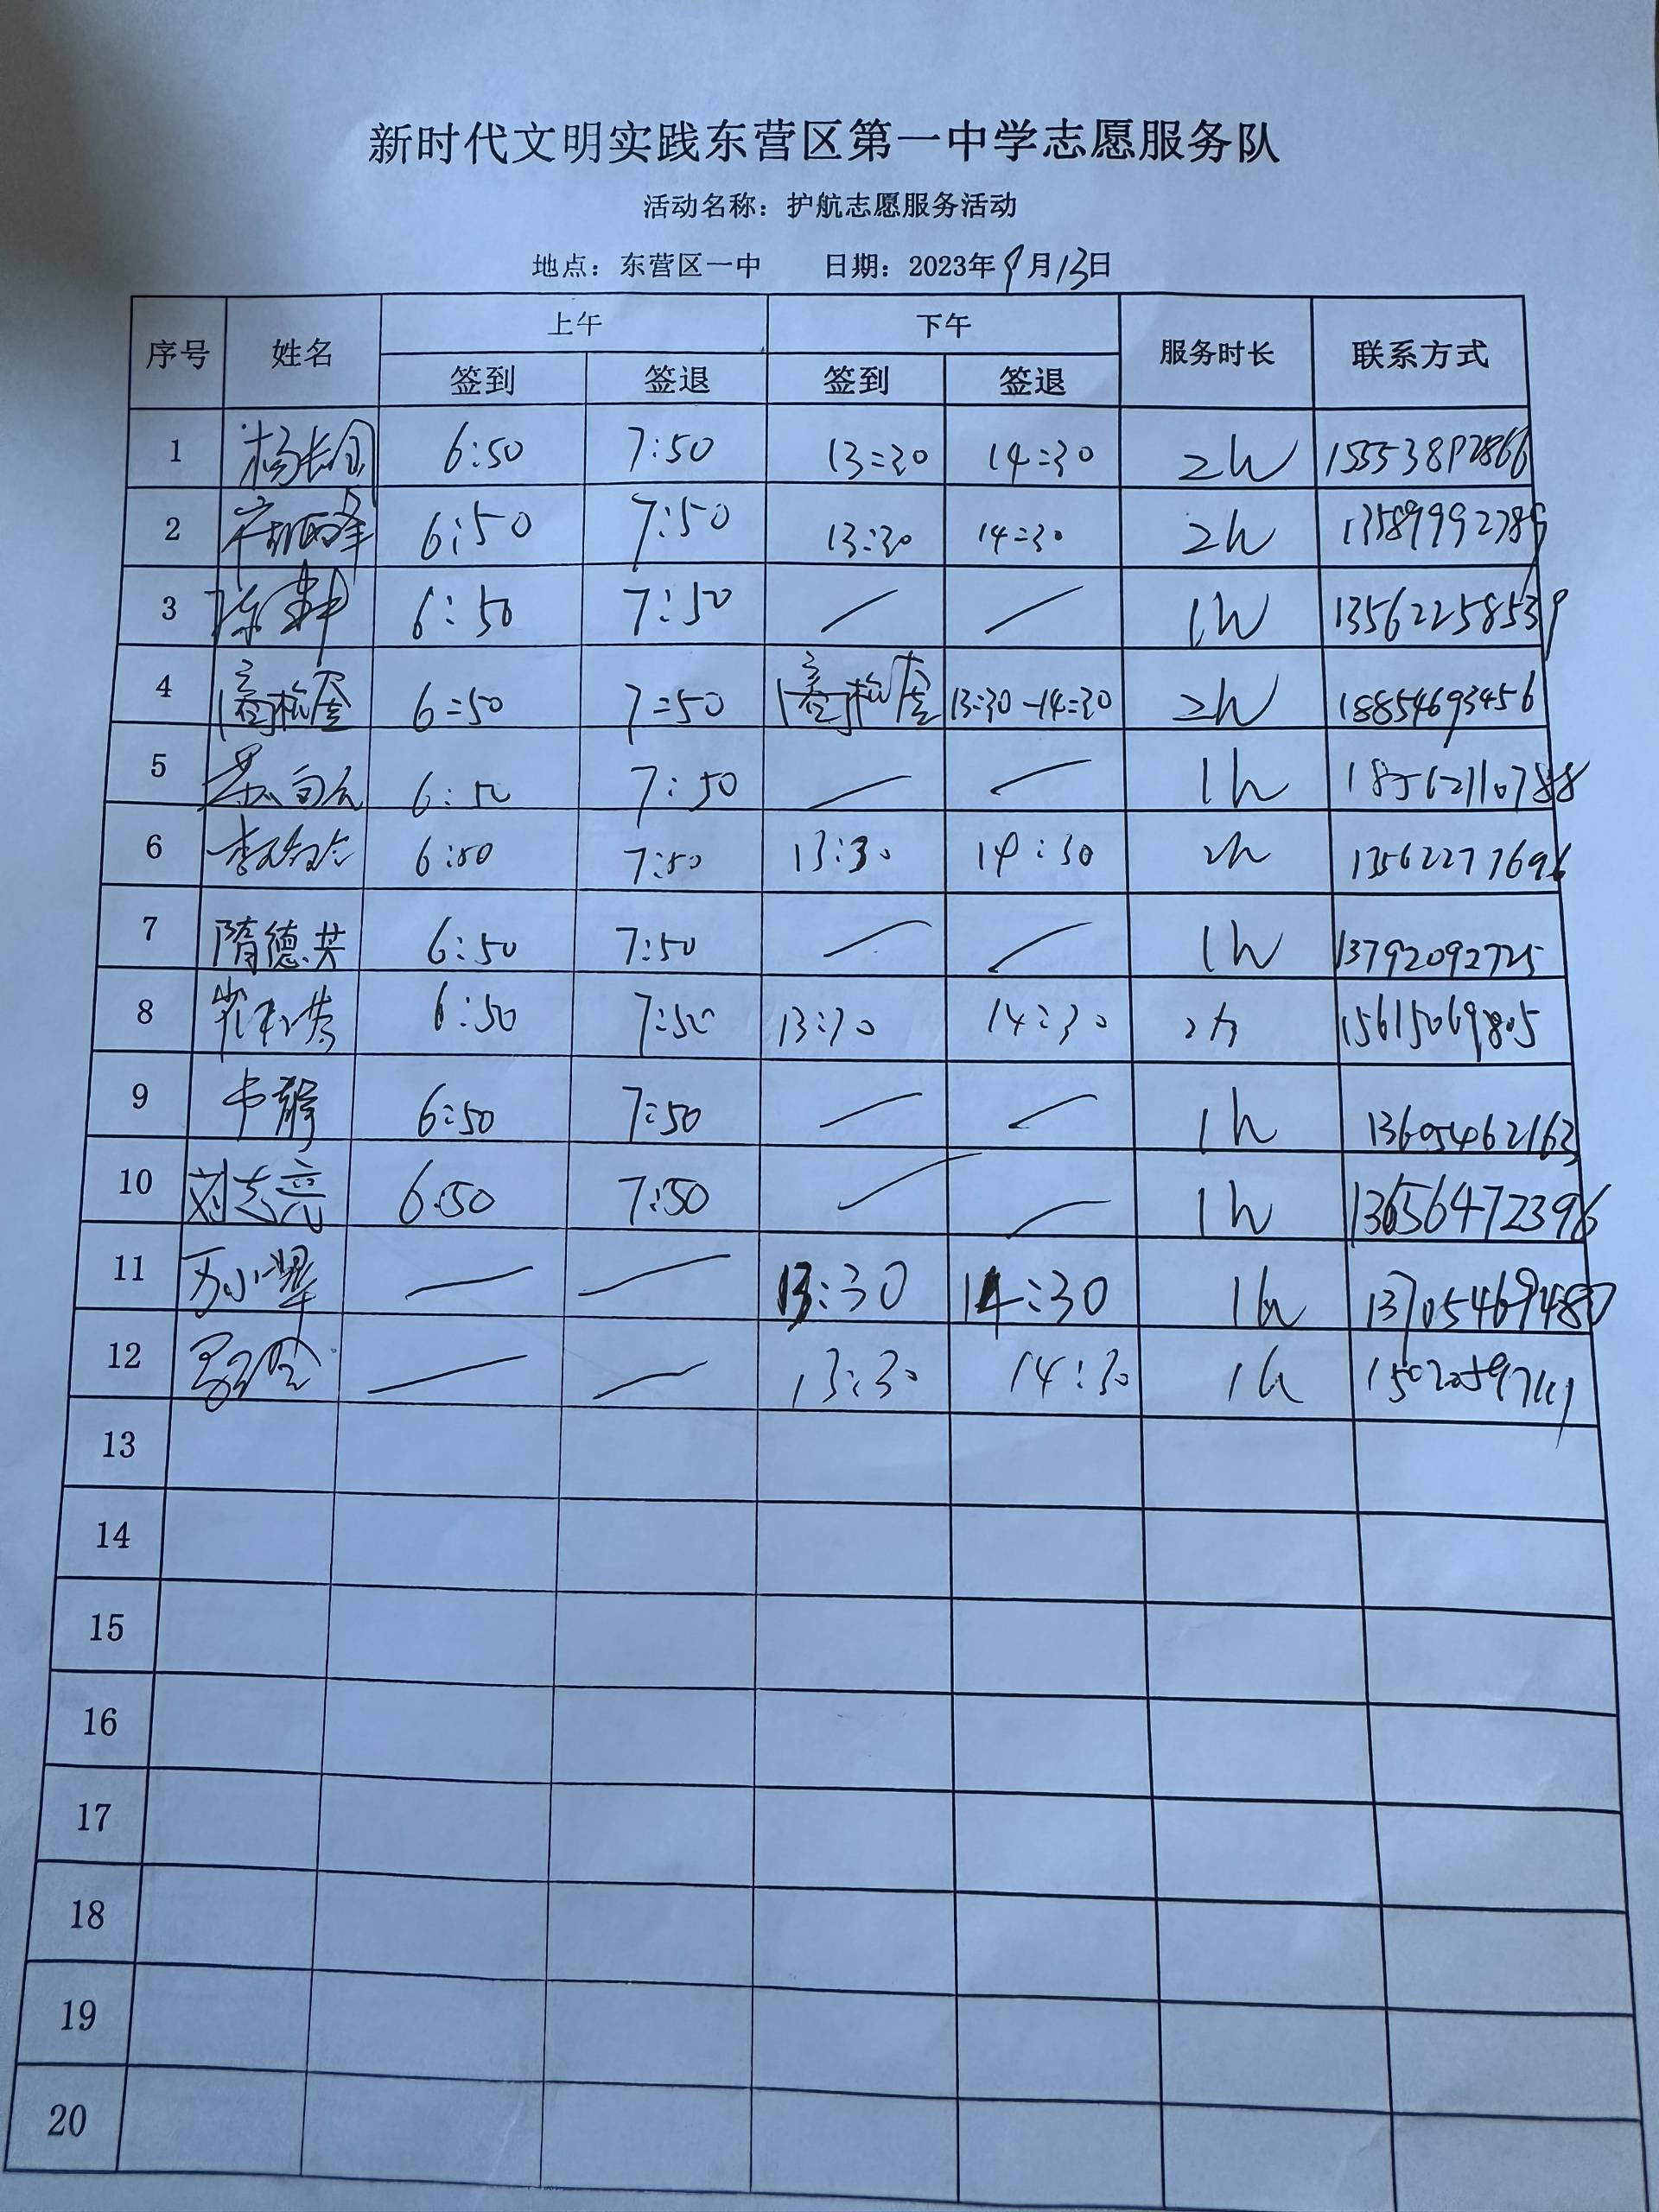 新时代文明实践东营区第一中学志愿服务队
活动名称：护航志愿服务活动
地点：东营区一中 日期：2023年9月13日
序号 姓名 上午 下午 服务时长 联系方式
签到 签退 签到 签退
1 6:50 7:50 13:30 14:30 2h
2 6:50 7:50 13:30 14:30 2h 13589992789
3 6:50 7:50 1h 13562258539
4 6:50 7:50 13:30-14:30 2h 18854693456
5 6:50 7:50 1h 18562110788
6 6:50 7:50 13:30 14:30 2h 13562277696
7 隋德芬 6:50 7:50 1h 13792092725
8 6:50 7:50 13:30 14:30 2h 15615069805
9 韦静 6:50 7:50 1h 13605462163
10 刘志亮 6:50 7:50 1h 13656472396
11 万小翠 13:30 14:30 1h 13705469480
12 13:30 14:30 1h
13
14
15
16
17
18
19
20